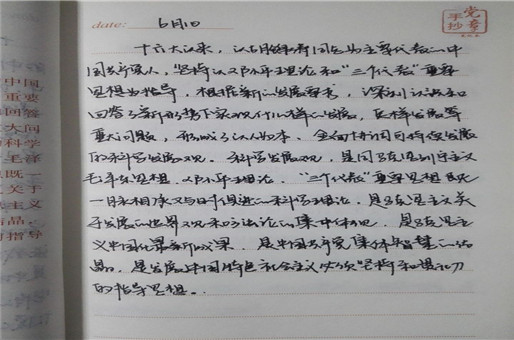 date: 6月1日
党章
手抄
十六大以来，以胡锦涛同志为主要代表的中
国共产党人，坚持以邓小平理论和“三个代表”重要
思想为指导，根据新的发展要求，深刻认识和
回答了新形势下实现什么样的发展、怎样发展等
重大问题，形成了以人为本、全面协调可持续发展
的科学发展观。科学发展观，是同马克思列宁主义
毛泽东思想、邓小平理论、“三个代表”重要思想既
一脉相承又与时俱进的科学理论，是马克思主义关
于发展的世界观和方法论的集中体现，是马克思主
义中国化最新成果，是中国共产党集体智慧的结
晶，是发展中国特色社会主义必须坚持和贯彻
的指导思想。
中国
重要
回答
大问
科学
毛泽
既一
义关于
思主义
结晶，
的指导